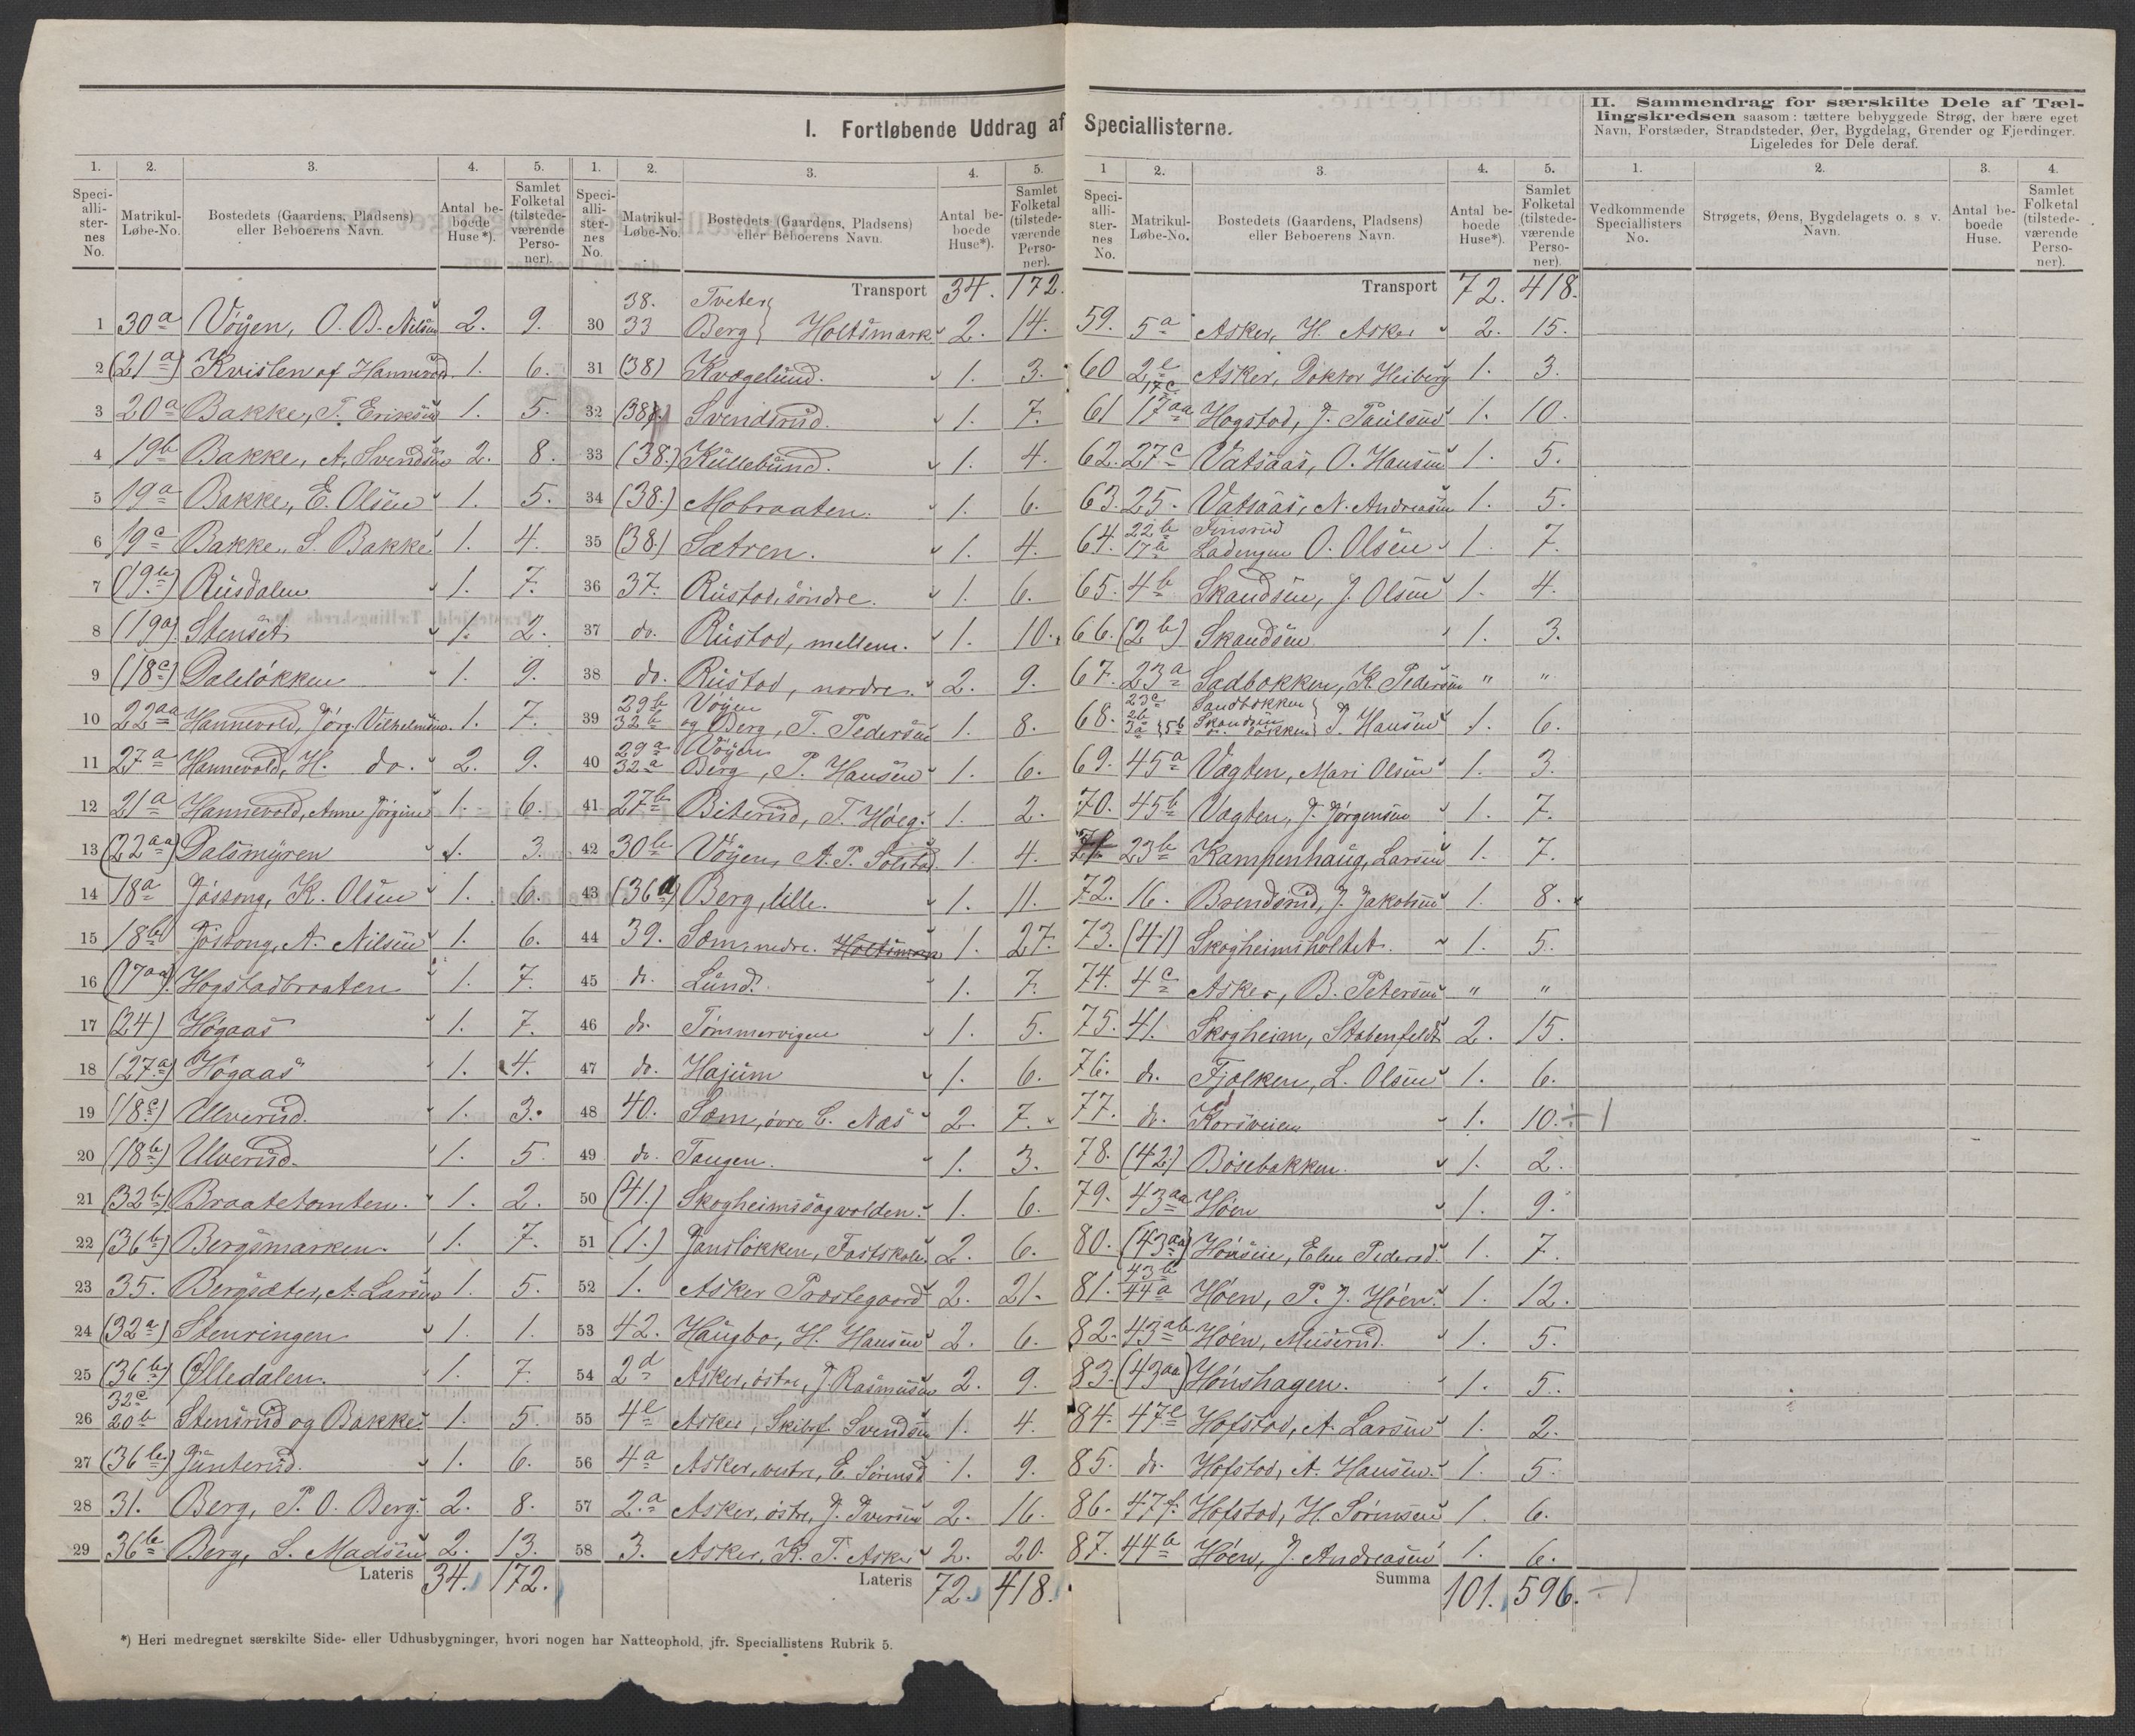 I. Fortløbende Uddrag af Speciallisterne.
II. Sammendrag for særskilte Dele af Tæl-
lingskredsen saasom: tættere bebyggede Strøg, der bære eget
Navn, Forstæder, Strandsteder, Øer, Bygdelag, Grender og Fjerdinger.
Ligeledes for Dele deraf.
1. 2. 3. 4. 5.
Speciallisternes No. Matrikul-Løbe-No. Bostedets (Gaardens, Pladsens) eller Beboerens Navn. Antal beboede Huse*). Samlet Folketal (tilstedeværende Personer).
1 30a Vöyen, O. B. Nilsen 2. 9.
2 (21a) Kvisten af Hannevold 1. 6.
3 20a Bakke, T. Eriksen 1. 5.
4 19b Bakke, A. Svendsen 2. 8.
5 19a Bakke, E. Olsen 1. 5.
6 19c Bakke, S. Bakke 1. 4.
7 (19b) Rusdalen 1. 7.
8 (19a) Stenset 1. 2.
9 (18c) Dalelökken 1. 9.
10 22aa Hannevold, Jörg. Vilhelmsen 1. 7.
11 27a Hannevold, H. do. 2. 9.
12 21a Hannevold, Anne Jörgine 1. 6.
13 (22aa) Dalsmyren 1. 3.
14 18a Jössong, K. Olsen 1. 6.
15 18b Jössong, A. Nilsen 1. 6.
16 (17aa) Hogstadbraaten 1. 7.
17 (24) Högaas 1. 7.
18 (27a) Högaas 1. 4.
19 (18c) Ulverud. 1. 3.
20 (18b) Ulverud. 1. 5.
21 (32b) Braatetomten. 1. 2.
22 (36b) Bergsmarken. 1. 7.
23 35. Bergsæter, A. Larsen 1. 5.
24 (32a) Stenringen 1. 1.
25 (36b) Olledalen. 1. 7.
26 32c 20b Stensrud og Bakke 1. 5.
27 (36b) Gunterud. 1. 6.
28 31. Berg, P. O. Berg. 2. 8.
29 36b Berg, S. Madsen 2. 13.
Lateris 34. 172.
1. 2. 3. 4. 5.
Speciallisternes No. Matrikul-Løbe-No. Bostedets (Gaardens, Pladsens) eller Beboerens Navn. Antal beboede Huse*). Samlet Folketal (tilstedeværende Personer).
Transport 34. 172.
30 38. 33 Tveter Berg } Holtsmark 2. 14.
31 (38) Kvægelund. 1. 3.
32 (38) Svendsrud. 1. 7.
33 (38.) Kullebund. 1. 4.
34 (38.) Mobraaten. 1. 6.
35 (38) Sætren. 1. 4.
36 37. Rustad, söndre. 1. 6.
37 do. Rustad, mellem. 1. 10.
38 do. Rustad, nordre. 2. 9.
39 29b 32b Vöyen og Berg, T. Pedersen 1. 8.
40 29a 32a Vöyen Berg, P. Hansen 1. 6.
41 27b Biterud, T. Höeg. 1. 2.
42 30b Vöyen, A. P. Solstad. 1. 4.
43 (36a) Berg, lille. 1. 11.
44 39. Sem, nedre. Holtsmark 1. 27.
45 do. Lund. 1. 7.
46 do. Tömmervigen 1. 5.
47 do. Hajum 1. 6.
48 40. Sem, övre C. Næs 2. 7.
49 do. Tangen. 1. 3.
50 (41.) Skogheimssagvolden. 1. 6.
51 (1.) Janslökken, Fastskole 2. 6.
52 1. Asker Prestegaard 2. 21.
53 42. Haugbo, H. Hansen 2. 6.
54 2d Asker, östre, J. Rasmusen 2. 9.
55 4e Asker, Skibsf. Svendsen 1. 4.
56 4a Asker, vestre, E. Sörensd 1. 9.
57 2.a Asker, östre, J. Iversen 2. 16.
58 3. Asker, K. T. Asker 2. 20.
Lateris 72. 418.
1 2. 3. 4. 5.
Speciallisternes No. Matrikul-Løbe-No. Bostedets (Gaardens, Pladsens) eller Beboerens Navn. Antal beboede Huse*). Samlet Folketal (tilstedeværende Personer).
Transport 72. 418.
59. 5a Asker, H. Asker 2. 15.
60 2e Asker, Doktor Heiberg 1. 3.
61 17c 17aa Hogstad, J. Paulsen 1. 10.
62. 27c Vatsaas, O. Hansen 1. 5.
63. 25. Vatsaas, N. Andreasen 1. 5.
64. 22b 17b Finsrud Ladengen O. Olsen 1. 7.
65. 4b Skaudsen, J. Olsen 1. 4.
66. (2b) Skaudsen 1. 3.
67. 23a Sadbokken, K. Pedersen " "
68. 23c 2b 3a 5b Sandbakken Skaudsen do. Lökken } P. Hansen 1. 6.
69. 45a Vagten, Mari Olsen 1. 3.
70. 45b Vagten, J. Jörgensen 1. 7.
71. 23b Kampenhaug, Larsen 1. 7.
72. 16. Brendsrud, J. Jakobsen 1. 8.
73. (41) Skogheimsholtet. 1. 5.
74. 4c Asker, B. Petersen " "
75. 41. Skogheim, Stabenfeldt 2. 15.
76. do. Fjælken, L. Olsen 1. 6.
77. do. Korsveien 1. 10. ÷ 1
78. (42) Bösebakken. 1. 2.
79. 43aa Höen 1. 9.
80. (43aa) Hönsen, Elen Pedersd. 1. 7.
81. 43b 44a Höen, P. J. Höen. 1. 12.
82. 43ab Höen, Muserud. 1. 5.
83. (43aa) Hönshagen. 1. 5.
84. 47e Hofstad, A. Larsen 1. 2.
85. do. Hofstad, A. Hansen. 1. 5.
86. 47f. Hofstad, H. Sörensen 1. 6.
87. 44b Höen, J. Andreasen 1. 6.
Summa 101. 596. ÷ 1
1. 2. 3. 4.
Vedkommende Speciallisters No. Strøgets, Øens, Bygdelagets o. s. v. Navn. Antal beboede Huse. Samlet Folketal (tilstedeværende Personer).
*) Heri medregnet særskilte Side- eller Udhusbygninger, hvori nogen har Natteophold, jfr. Speciallistens Rubrik 5.